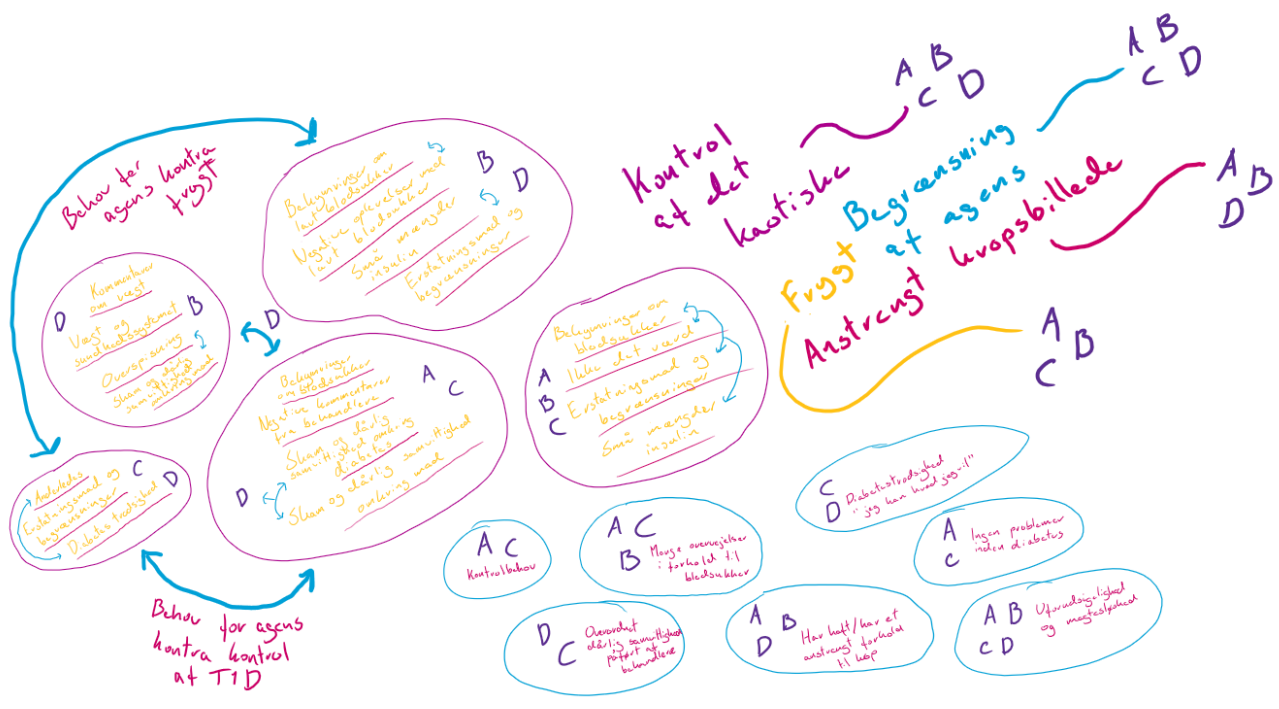 Behov for
agens kontra
frygt
Bekymringer om
lavt blodsukker
Negative oplevelser med
lavt blodsukker
Små mængder
insulin
Erstatningsmad og
begrænsninger
B
D
Kommentarer
om vægt
Vægt og
sundhedssystemet
Overspisning
Sham og dårlig
samvittighed
omkring mad
D
B
D
Bekymringer
om blodsukker
Negative kommentarer
fra behandlere
Sham og dårlig
samvittighed omkring
diabetes
Sham og dårlig samvittighed
omkring mad
A
C
D
Anderledes
Erstatningsmad og
begrænsninger
Diabetes trodsighed
C
D
Behov for agens
kontra kontrol
af T1D
Bekymringer om
blodsukker
Ikke det værd
Erstatningsmad og
begrænsninger
Små mængder
insulin
A
B
C
Kontrol
af det
kaotiske
A B
C D
Begrænsning
af agens
A B
C D
Anstrengt kropsbillede
A B
D
Frygt
A
B
C
A C
Kontrolbehov
A C
B
Mange overvejelser
i forhold til
blodsukker
C
D
Diabetestrodsighed
"jeg kan hvad jeg vil"
A
C
Ingen problemer
inden diabetes
D
C
Overordnet
dårlig samvittighed
påført af
behandlere
A
B
D
Har haft/har et
anstrengt forhold
til krop
A B
C D
Uforudsigelighed
og magtesløshed